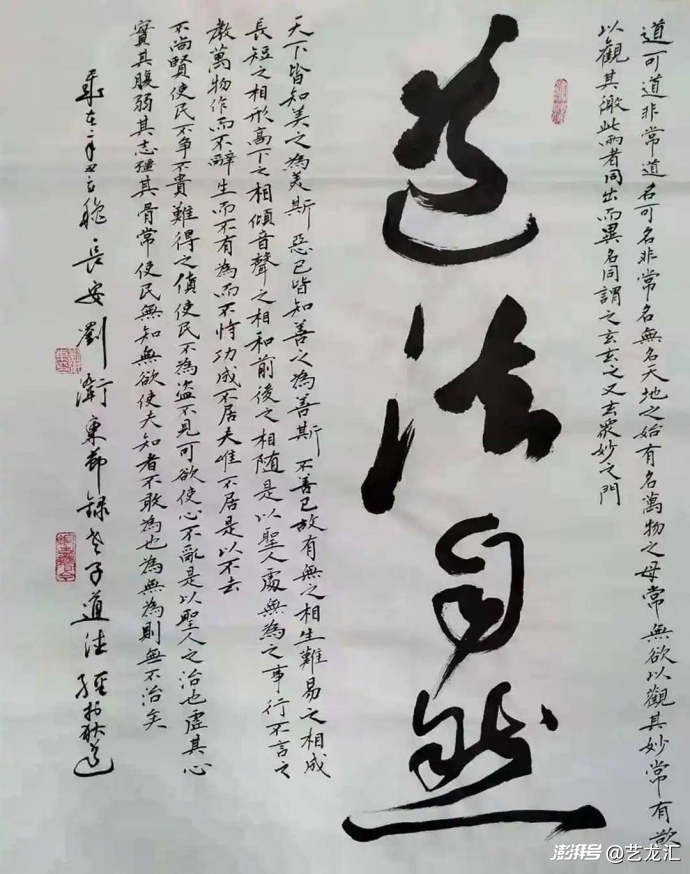 道可道非常道名可名非常名無名天地之始有名萬物之母常無欲以觀其妙常有欲
以觀其徼此兩者同出而異名同謂之玄玄之又玄眾妙之門
道法自然
天下皆知美之為美斯惡已皆知善之為善斯不善已故有無之相生難易之相成
長短之相形高下之相傾音聲之相和前後之相随是以聖人處無為之事行不言之
教萬物作而不辭生而不有為而不恃功成不居夫唯不居是以不去
不尚賢使民不爭不貴難得之貨使民不為盜不見可欲使心不亂是以聖人之治也虛其心
實其腹弱其志強其骨常使民無知無欲使夫知者不敢為也為無為則無不治矣
長安劉衛東節錄老子道法經於
澎湃号@艺龙汇